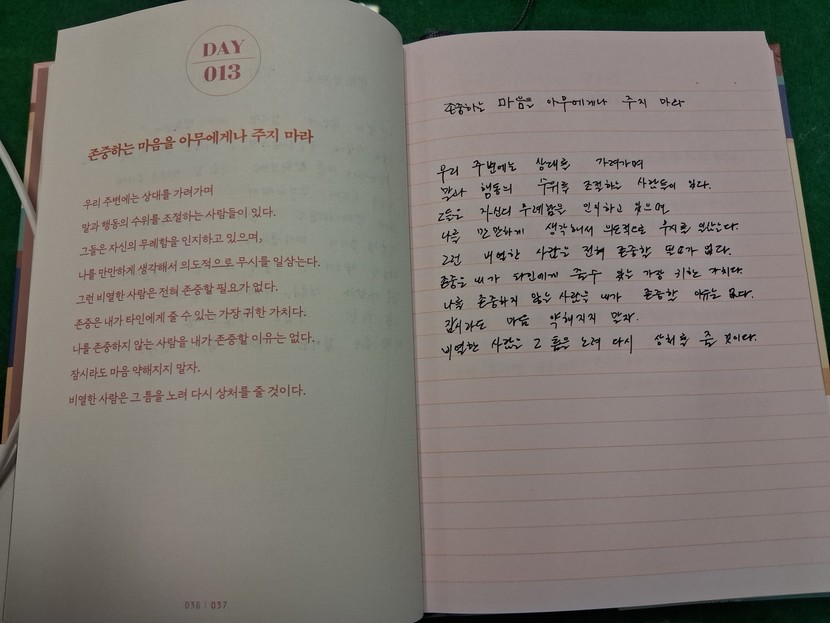 DAY
013
존중하는 마음을 아무에게나 주지 마라
우리 주변에는 상대를 가려가며
말과 행동의 수위를 조절하는 사람들이 있다.
그들은 자신의 무례함을 인지하고 있으며,
나를 만만하게 생각해서 의도적으로 무시를 일삼는다.
그런 비열한 사람은 전혀 존중할 필요가 없다.
존중은 내가 타인에게 줄 수 있는 가장 귀한 가치다.
나를 존중하지 않는 사람을 내가 존중할 이유는 없다.
잠시라도 마음 약해지지 말자.
비열한 사람은 그 틈을 노려 다시 상처를 줄 것이다.
036 | 037
존중하는 마음을 아무에게나 주지 마라
우리 주변에는 상대를 가려가며
말과 행동의 수위를 조절하는 사람들이 있다.
그들은 자신의 무례함을 인지하고 있으며
나를 만만하게 생각해서 의도적으로 무시를 일삼는다.
그런 비열한 사람은 전혀 존중할 필요가 없다.
존중은 내가 타인에게 줄 수 있는 가장 귀한 가치다.
나를 존중하지 않는 사람을 내가 존중할 이유는 없다.
잠시라도 마음 약해지지 말자.
비열한 사람은 그 틈을 노려 다시 상처를 줄 것이다.